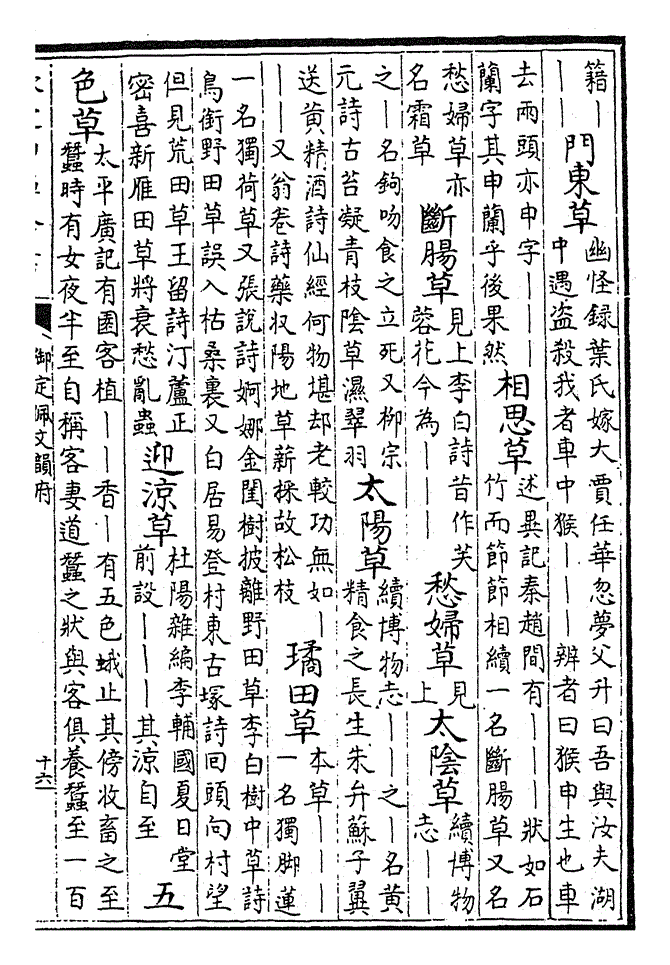 籍｜
｜｜
門東草
幽怪録葉氏嫁大賈任華忽夢父升曰吾與汝夫湖
中遇盗殺我者車中猴｜｜｜辨者曰猴申生也車
去兩頭亦申字｜｜｜｜
蘭字其申蘭乎後果然
相思草
述異記秦趙間有｜｜｜狀如石
竹而節節相續一名斷腸草又名
愁婦草亦
名霜草
斷腸草
見上李白詩昔作芙
蓉花今為｜｜｜
愁婦草
見
上
太陰草
續博物
志｜｜
之｜名鉤吻食之立死又柳宗
元詩古苔凝青枝陰草濕翠羽
太陽草
續博物志｜｜之｜名黄
精食之長生朱弁蘇子翼
送黄精酒詩仙經何物堪却老較功無如｜
｜｜又翁卷詩藥収陽地草新採故松枝
璚田草
本草｜｜｜
一名獨脚蓮
一名獨荷草又張說詩婀娜金閨樹披離野田草李白樹中草詩
鳥銜野田草誤入枯桑裏又白居易登村東古塚詩回頭向村望
但見荒田草王留詩汀蘆正
密喜新雁田草將衰愁亂蟲
迎涼草
杜陽雜編李輔國夏日堂
前設｜｜｜其涼自至
五
色草
太平廣記有園客植｜｜香｜有五色蛾止其傍收畜之至
蠶時有女夜半至自稱客妻道蠶之狀與客俱養蠶至一百
御定佩文韻府
十六